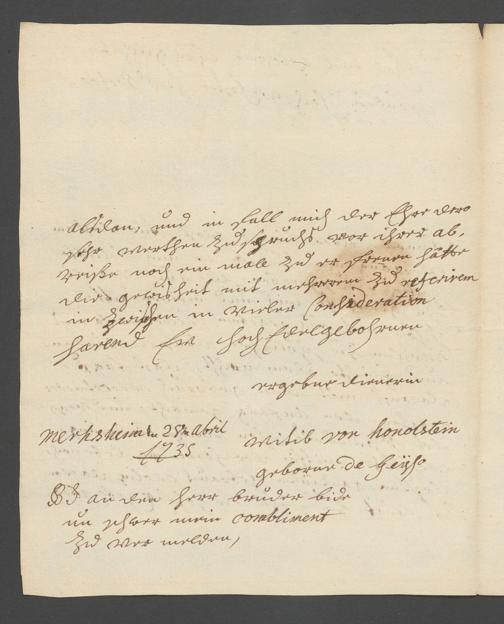 abidon, und in fall mich der Ehre dero
sehr werthen Zuspruchs vor ihrer ab,
reiße noch ein mall zu er freuen hätte
die gewisheit mit mehrerem zu referiren
in zwischen in vieler Consideration
harend Ew hochEdelgebohrnen
ergebne dienerin
merksheim 28tn Abril
1735
witib von honolstein
geborne de
PS an den herr bruder bide
un schwer mein combliment
zu ver melden,